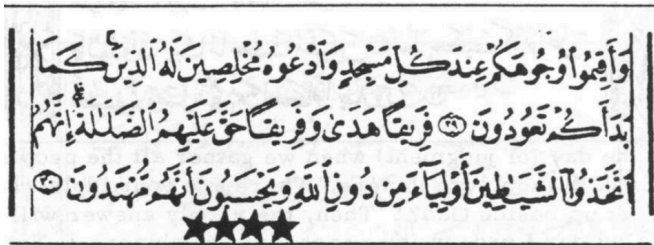 وَأَقِيمُوا۟ وُجُوهَكُمْ عِندَ كُلِّ مَسْجِدٍ وَٱدْعُوهُ مُخْلِصِينَ لَهُ ٱلدِّينَ كَمَا
بَدَأَكُمْ تَعُودُونَ ۝٢٩ فَرِيقًا هَدَىٰ وَفَرِيقًا حَقَّ عَلَيْهِمُ ٱلضَّلَٰلَةُ إِنَّهُمُ
ٱتَّخَذُوا۟ ٱلشَّيَٰطِينَ أَوْلِيَآءَ مِن دُونِ ٱللَّهِ وَيَحْسَبُونَ أَنَّهُم مُّهْتَدُونَ ۝٣٠